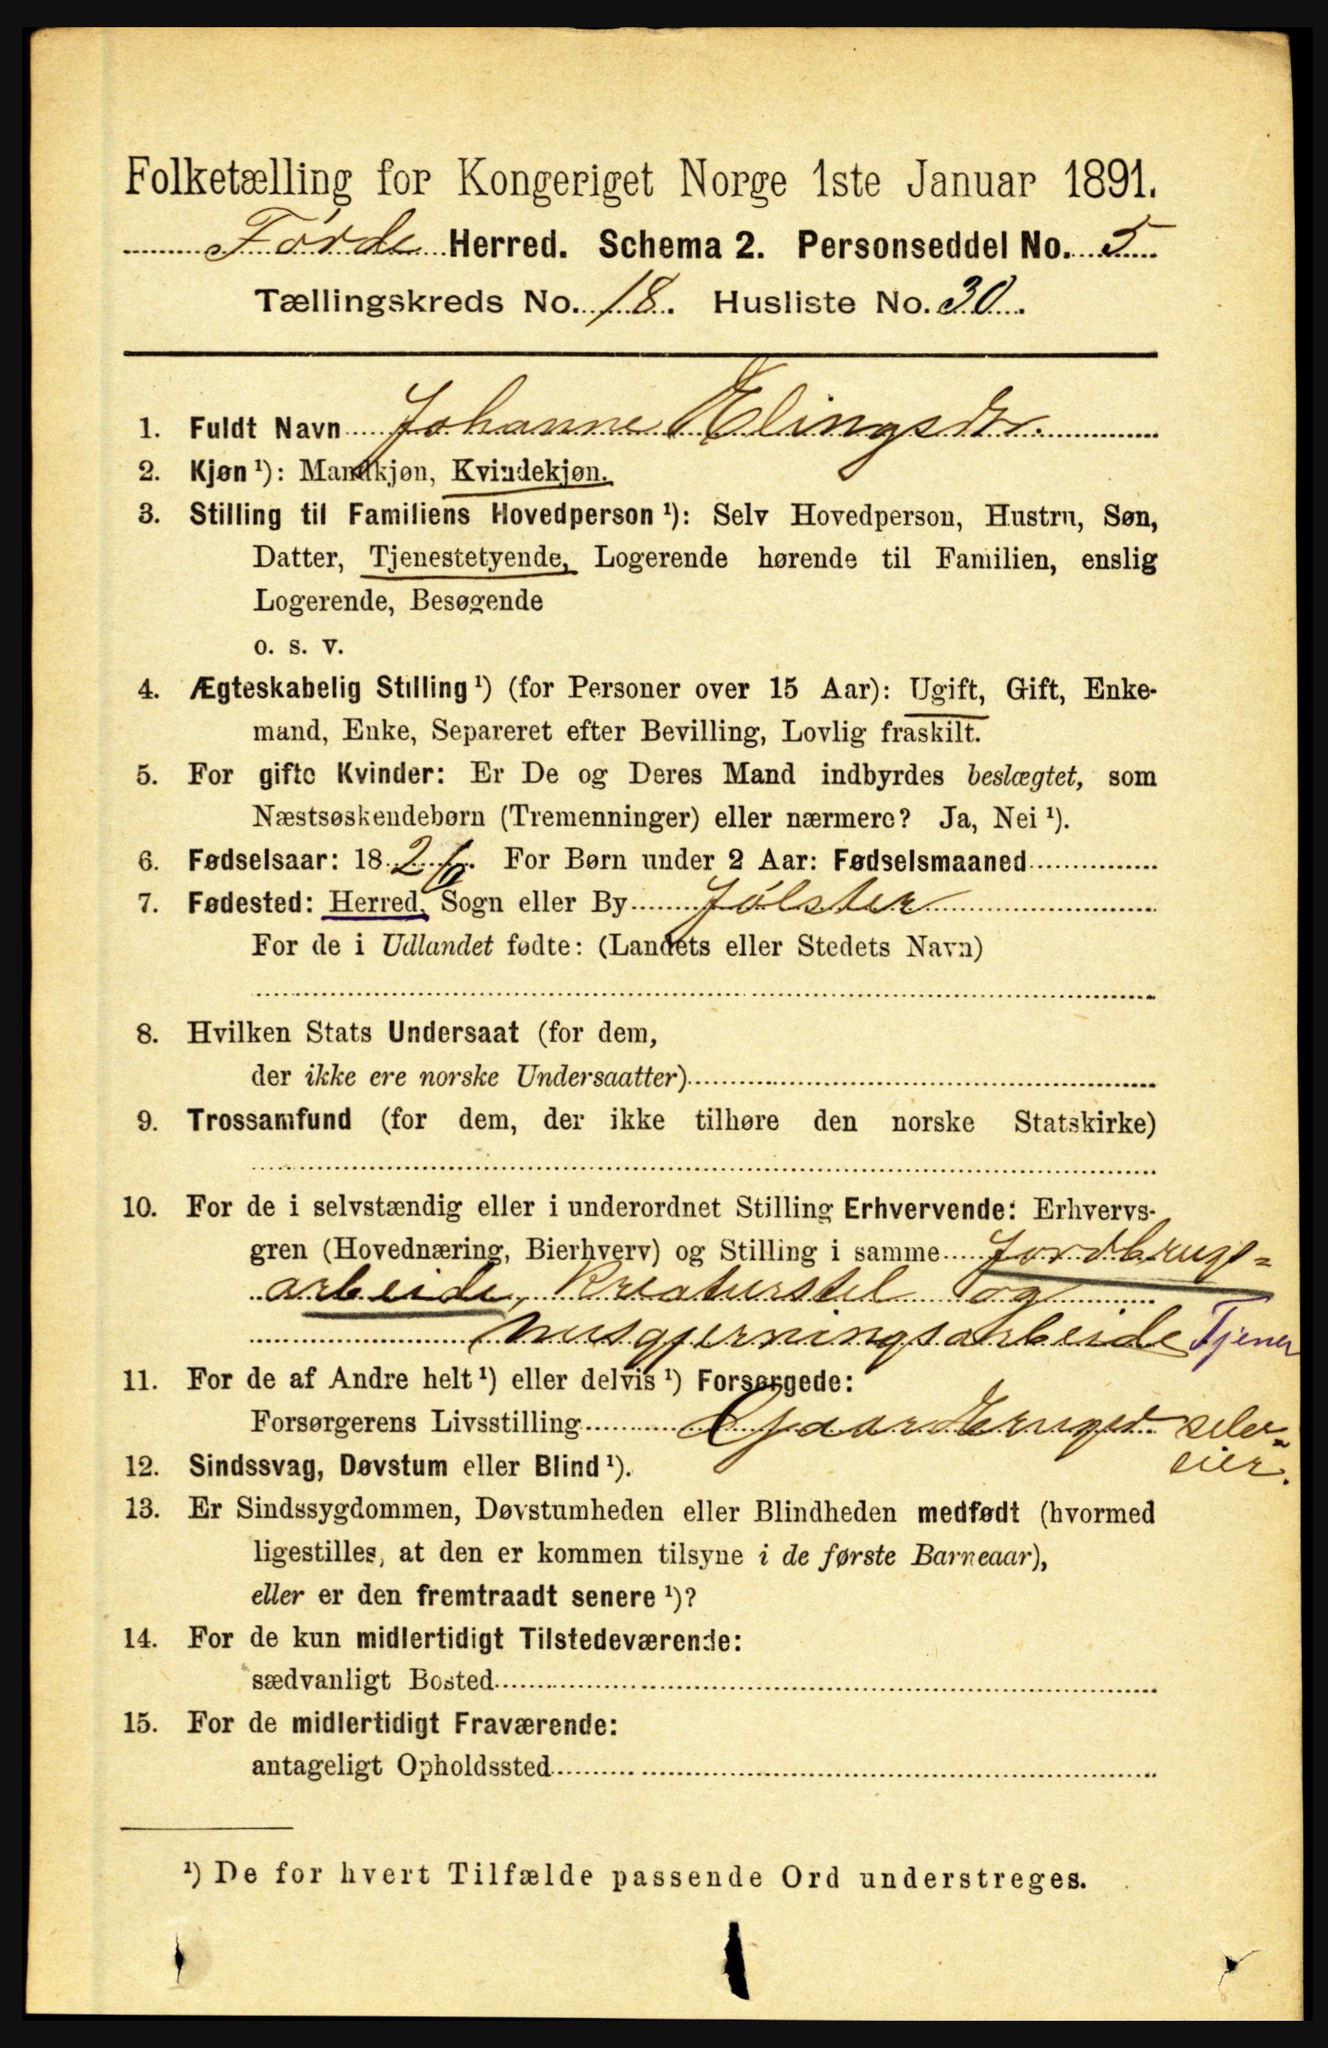 Folketælling for Kongeriget Norge 1ste Januar 1891.
Førde Herred. Schema 2. Personseddel No. 5
Tællingskreds No. 18. Husliste No. 30.
1. Fuldt Navn Johanne Elingsdr.
2. Kjøn ¹): Mandkjøn, Kvindekjøn.
3. Stilling til Familiens Hovedperson ¹): Selv Hovedperson, Hustru, Søn,
Datter, Tjenestetyende, Logerende hørende til Familien, enslig
Logerende, Besøgende
o. s. v.
4. Ægteskabelig Stilling ¹) (for Personer over 15 Aar): Ugift, Gift, Enke-
mand, Enke, Separeret efter Bevilling, Lovlig fraskilt.
5. For gifte Kvinder: Er De og Deres Mand indbyrdes beslægtet, som
Næstsøskendebørn (Tremenninger) eller nærmere? Ja, Nei ¹).
6. Fødselsaar: 1826. For Børn under 2 Aar: Fødselsmaaned
7. Fødested: Herred, Sogn eller By Jølster
For de i Udlandet fødte: (Landets eller Stedets Navn)
8. Hvilken Stats Undersaat (for dem,
der ikke ere norske Undersaatter)
9. Trossamfund (for dem, der ikke tilhøre den norske Statskirke)
10. For de i selvstændig eller i underordnet Stilling Erhvervende: Erhvervs-
gren (Hovednæring, Bierhverv) og Stilling i samme Jordbrugs=
arbeide, Kreaturstel og
husgjerningsarbeide Tjener
11. For de af Andre helt ¹) eller delvis ¹) Forsørgede:
Forsørgerens Livsstilling Gaardbruger selv=
eier.
12. Sindssvag, Døvstum eller Blind ¹).
13. Er Sindssygdommen, Døvstumheden eller Blindheden medfødt (hvormed
ligestilles, at den er kommen tilsyne i de første Barneaar),
eller er den fremtraadt senere ¹)?
14. For de kun midlertidigt Tilstedeværende:
sædvanligt Bosted
15. For de midlertidigt Fraværende:
antageligt Opholdssted
¹) De for hvert Tilfælde passende Ord understreges.